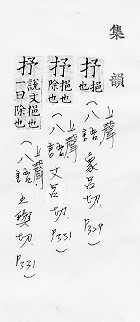 集韻
抒 挹也 (上聲 八語 象呂切 P329)
抒 挹也除也 (上聲 八語 丈呂切 P331)
抒 說文挹也一曰除也 (上聲 八語 上與切 P331)